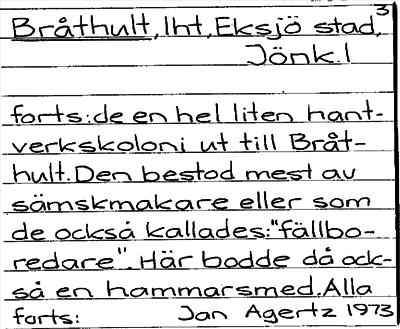 3
Bråthult, lht, Eksjö stad,
Jönk.l
forts:de en hel liten hant-
verkskoloni ut till Bråt-
hult. Den bestod mest av
sämskmakare eller som
de också kallades:"fällbo-
redare". Här bodde då ock-
så en hammarsmed. Alla
forts: Jan Agertz 1973